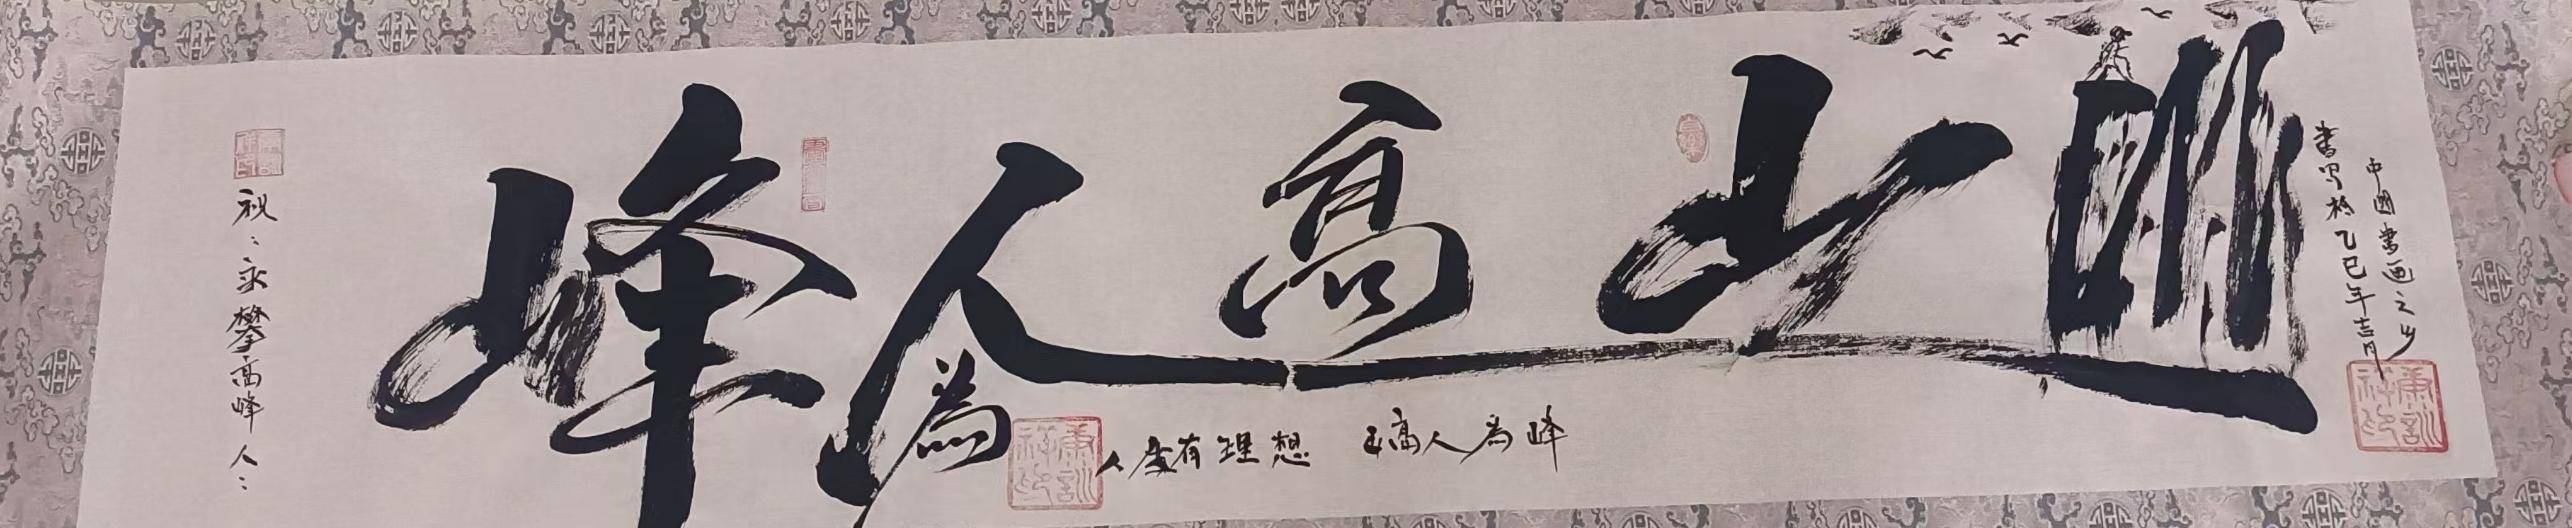 中國書画之乡
書写於乙巳年吉月
山高人為峰
人生有理想 山高人为峰
祝：永攀高峰人：